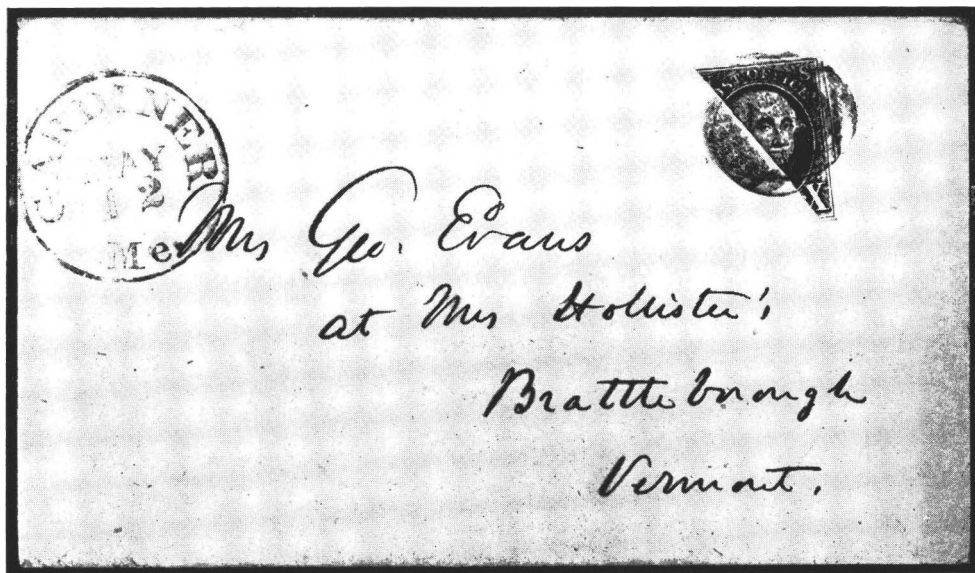 GARDINER
Me.
POST OFFICE
X
Mrs Geo. Evans
at Mrs Hollister's
Brattleborough
Vermont.